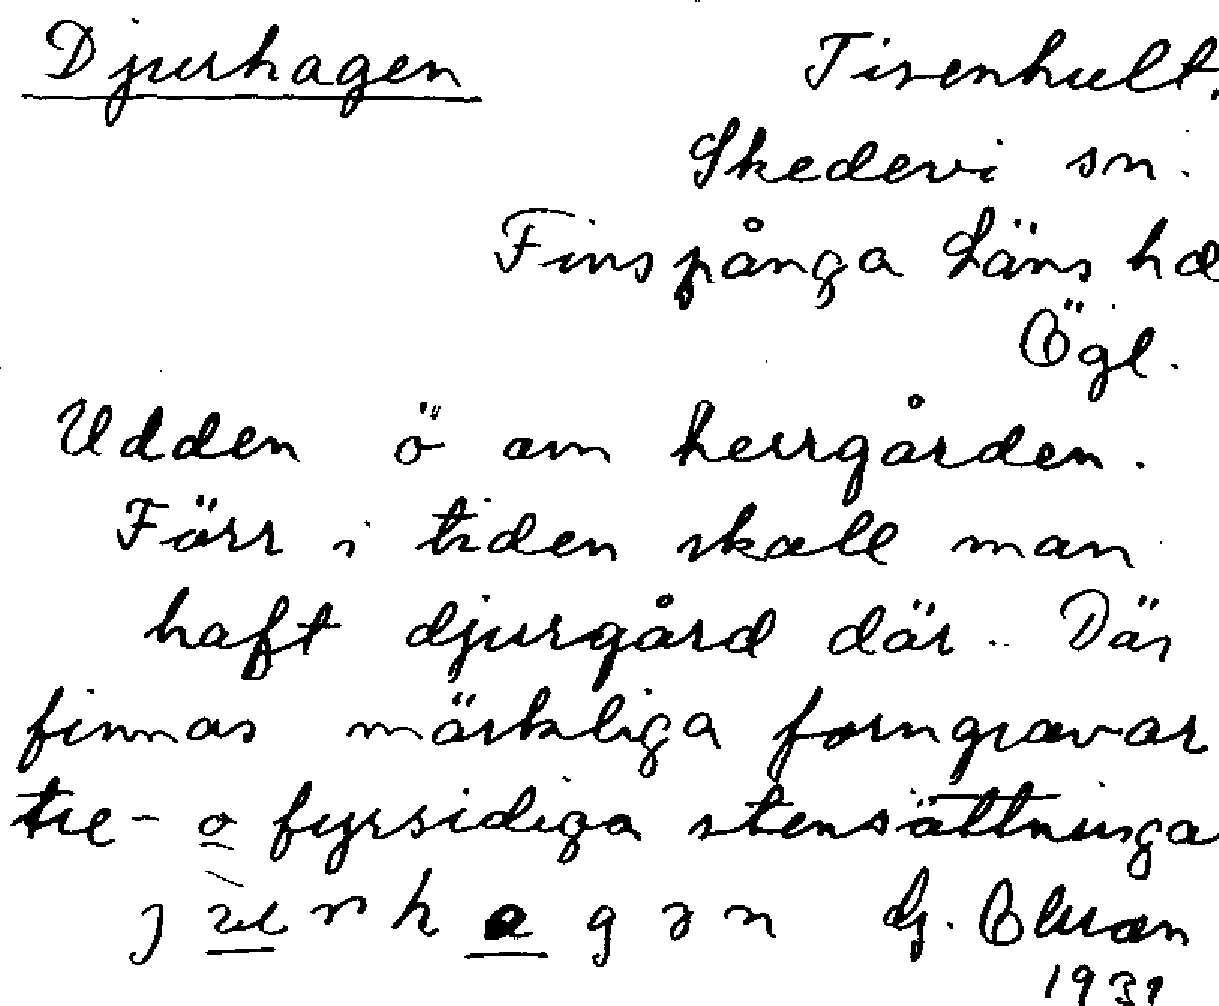 Djurhagen Tisenhult.
Skedevi sn.
Finspånga Läns hd
Ögl.
Udden ö om herrgården.
Förr i tiden skall man
haft djurgård där. Där
finnas märkliga forngravar
tre- o fyrsidiga stensättninga
j u r h a g ə n G.
1931